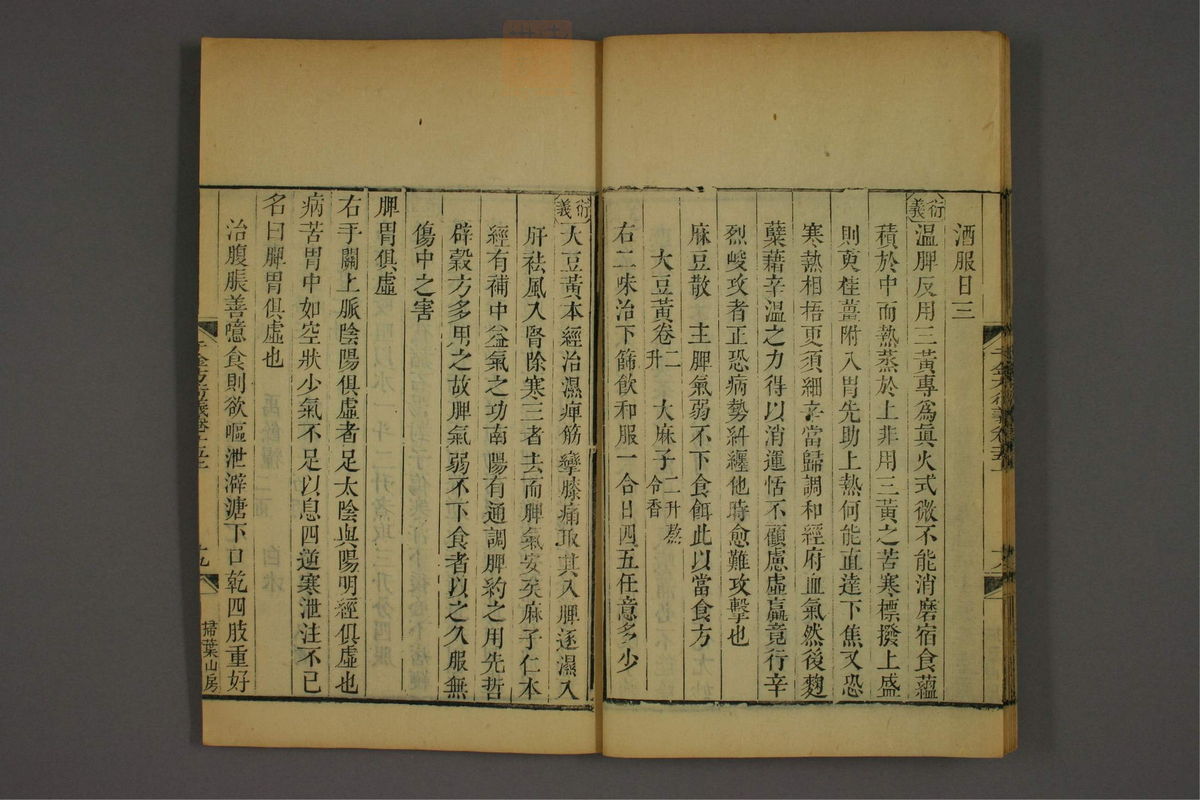 酒服日三
衍義
溫脾反用三黃專爲眞火式微不能消磨宿食蘊
積於中而熱蒸於上非用三黃之苦寒標撥上盛
則萸桂薑附入胃先助上熱何能直達下焦又恐
寒熱相捂更須細辛當歸調和經府血氣然後麴
蘗藉辛溫之力得以消運恬不顧慮虛羸竟行辛
烈峻攻者正恐病勢糾纏他時愈難攻擊也
麻豆散 主脾氣弱不下食餌此以當食方
大豆黃卷二升 大麻子二升熬令香
右二味治下篩飲和服一合日四五任意多少
衍義
大豆黃本經治濕痺筋攣膝痛取其入脾逐濕入
肝袪風入腎除寒三者去而脾氣安矣麻子仁本
經有補中益氣之功南陽有通調脾約之用先哲
辟穀方多用之故脾氣弱不下食者以之久服無
傷中之害
脾胃俱虛
右手關上脈陰陽俱虛者足太陰與陽明經俱虛也
病苦胃中如空狀少氣不足以息四逆寒泄注不已
名曰脾胃俱虛也
治腹脹善噫食則欲嘔泄澼溏下口乾四肢重好
千金方衍義卷十五上
十九
掃葉山房